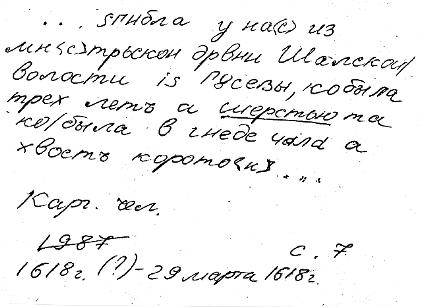 ... sгибла у на(с) из
мн(с)трьскои дрвни Шалскои
волости is Гусевы, кобыла
трех летъ а шерстью та
ко/была в гнеде чала а
хвостъ корото(к) ....
Карг. чел.
1987 с. 7
1618г. (?) - 29 марта 1618г.